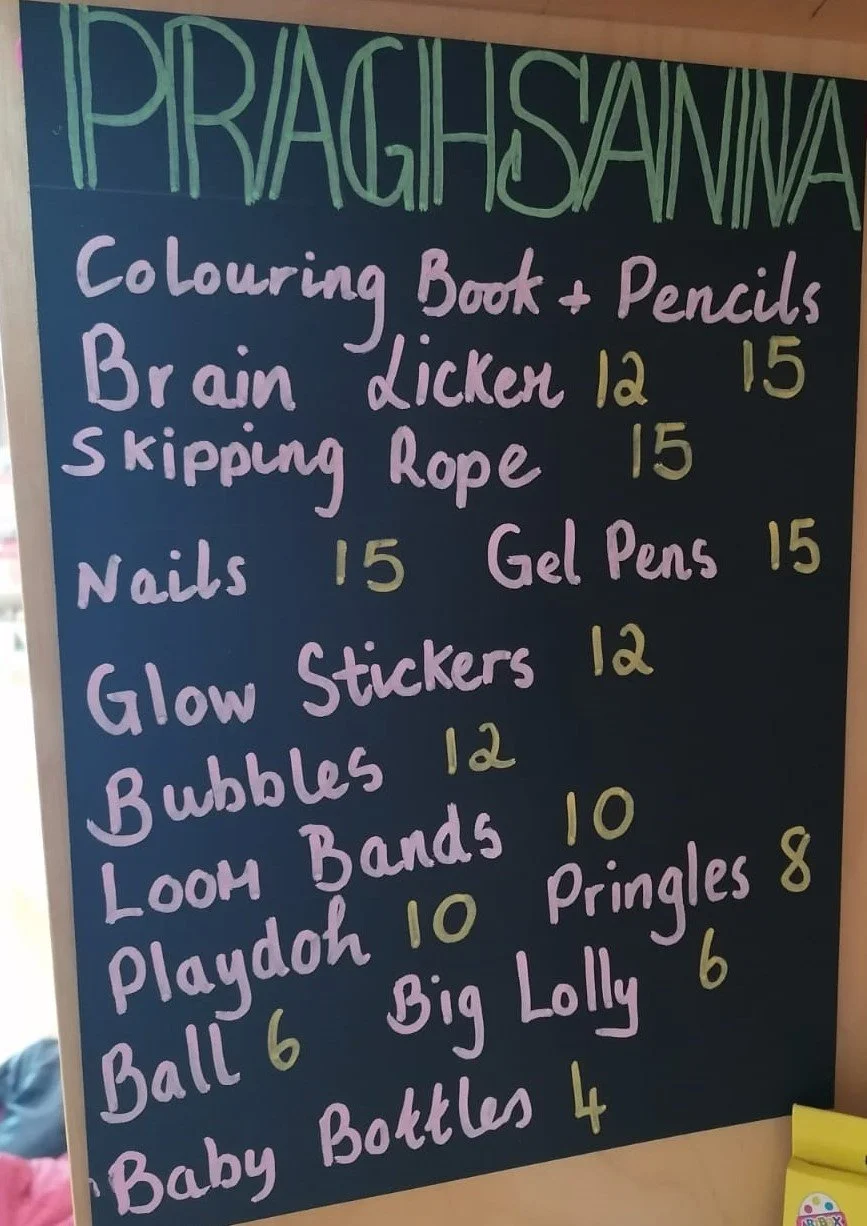 PRAGHSANNA
Colouring Book + Pencils
Brain Licker 12 15
Skipping Rope 15
Nails 15 Gel Pens 15
Glow Stickers 12
Bubbles 12
Loom Bands 10
Playdoh 10 Pringles 8
Ball 6 Big Lolly 6
Baby Bottles 4